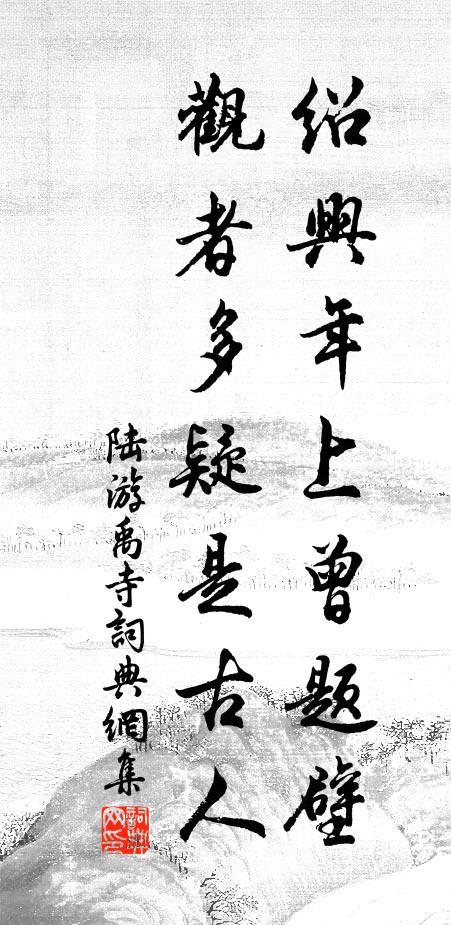 绍興年上曾题壁
觀者多疑是古人
陆游禹寺詞典網集